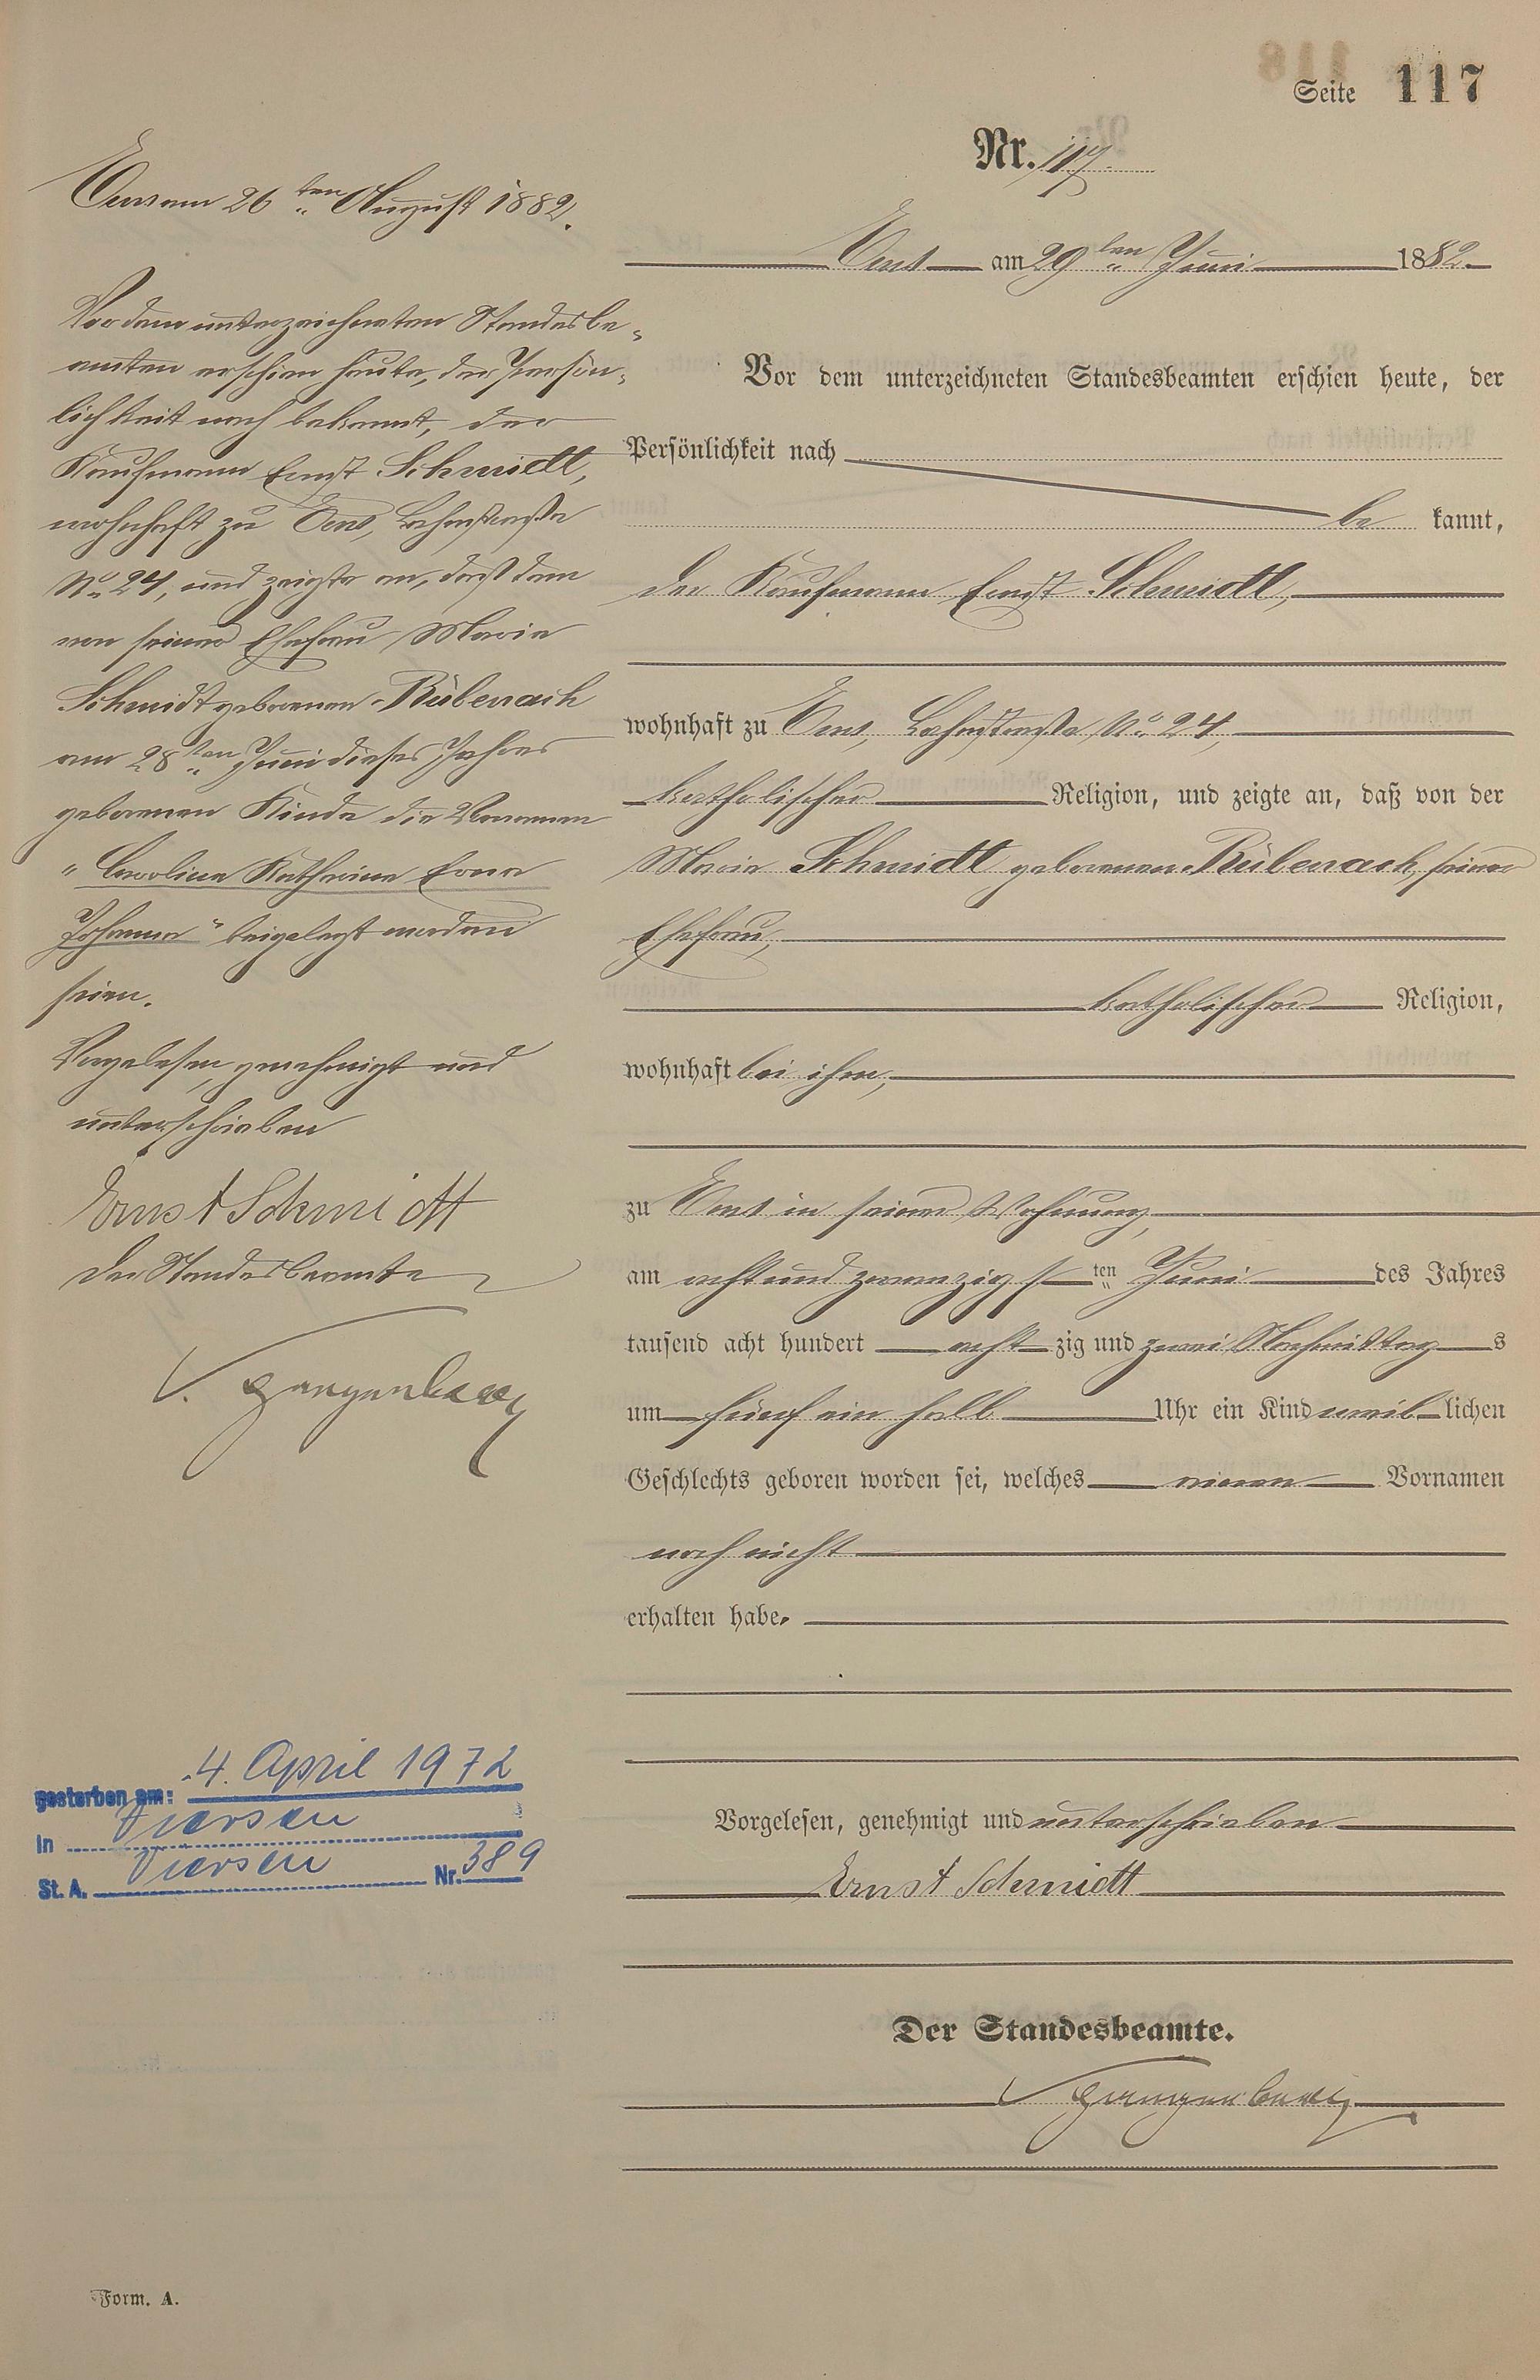 Seite 117
Nr. 117.
Ems am 29ten Juni 1882.
Vor dem unterzeichneten Standesbeamten erschien heute, der
Persönlichkeit nach
be kannt,
der Kaufmann Ernst Schmidt,
wohnhaft zu Ems, Lahnstraße No. 24,
katholischer Religion, und zeigte an, daß von der
Maria Schmidt geborenen Rübenach, seiner
Ehefrau,
katholischer Religion,
wohnhaft bei ihm,
zu Ems in seiner Wohnung,
am acht und zwanzigsten Juni des Jahres
tausend acht hundert acht zig und zwei Nachmittags
um fünf ein halb Uhr ein Kind weiblichen
Geschlechts geboren worden sei, welches einen Vornamen
noch nicht
erhalten habe.
Vorgelesen, genehmigt und unterschrieben
Ernst Schmidt
Der Standesbeamte.
Ems am 26ten August 1882.
Vor dem unterzeichneten Standesbe-
amten erschien heute, der Persön-
lichkeit nach bekannt, der
Kaufmann Ernst Schmidt,
wohnhaft zu Ems, Lahnstraße
No. 24, und zeigte an, daß dem
von seiner Ehefrau Maria
Schmidt geborenen Rübenach
am 28ten Juni dieses Jahres
geborenen Kinde die Vornamen
"Caroline Katharina Erna
Johanna" beigelegt worden
seien.
Vorgelesen, genehmigt und
unterschrieben
Ernst Schmidt
Der Standesbeamte
gestorben am: 4. April 1972
in Viersen
St. A. Viersen Nr. 389
Form. A.